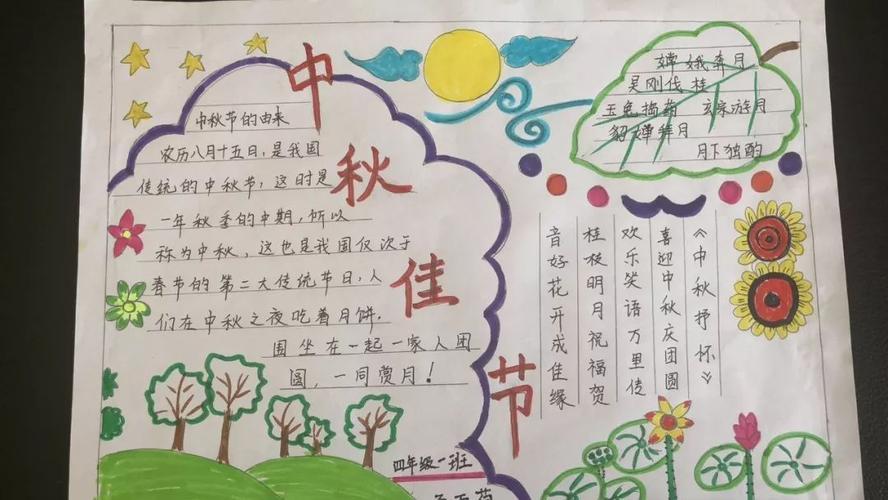 中秋佳节
中秋节的由来
农历八月十五日，是我国
传统的中秋节，这时是
一年秋季的中期，所以
称为中秋，这也是我国仅次于
春节的第二大传统节日，人
们在中秋之夜吃着月饼，
围坐在一起一家人团
圆，一同赏月！
嫦娥奔月
吴刚伐桂
玉兔捣药 玄宗游月
貂蝉拜月
月下独酌
《中秋抒怀》
喜迎中秋庆团圆
欢乐笑语万里传
桂枝明月祝福贺
音好花开成佳缘
四年级一班